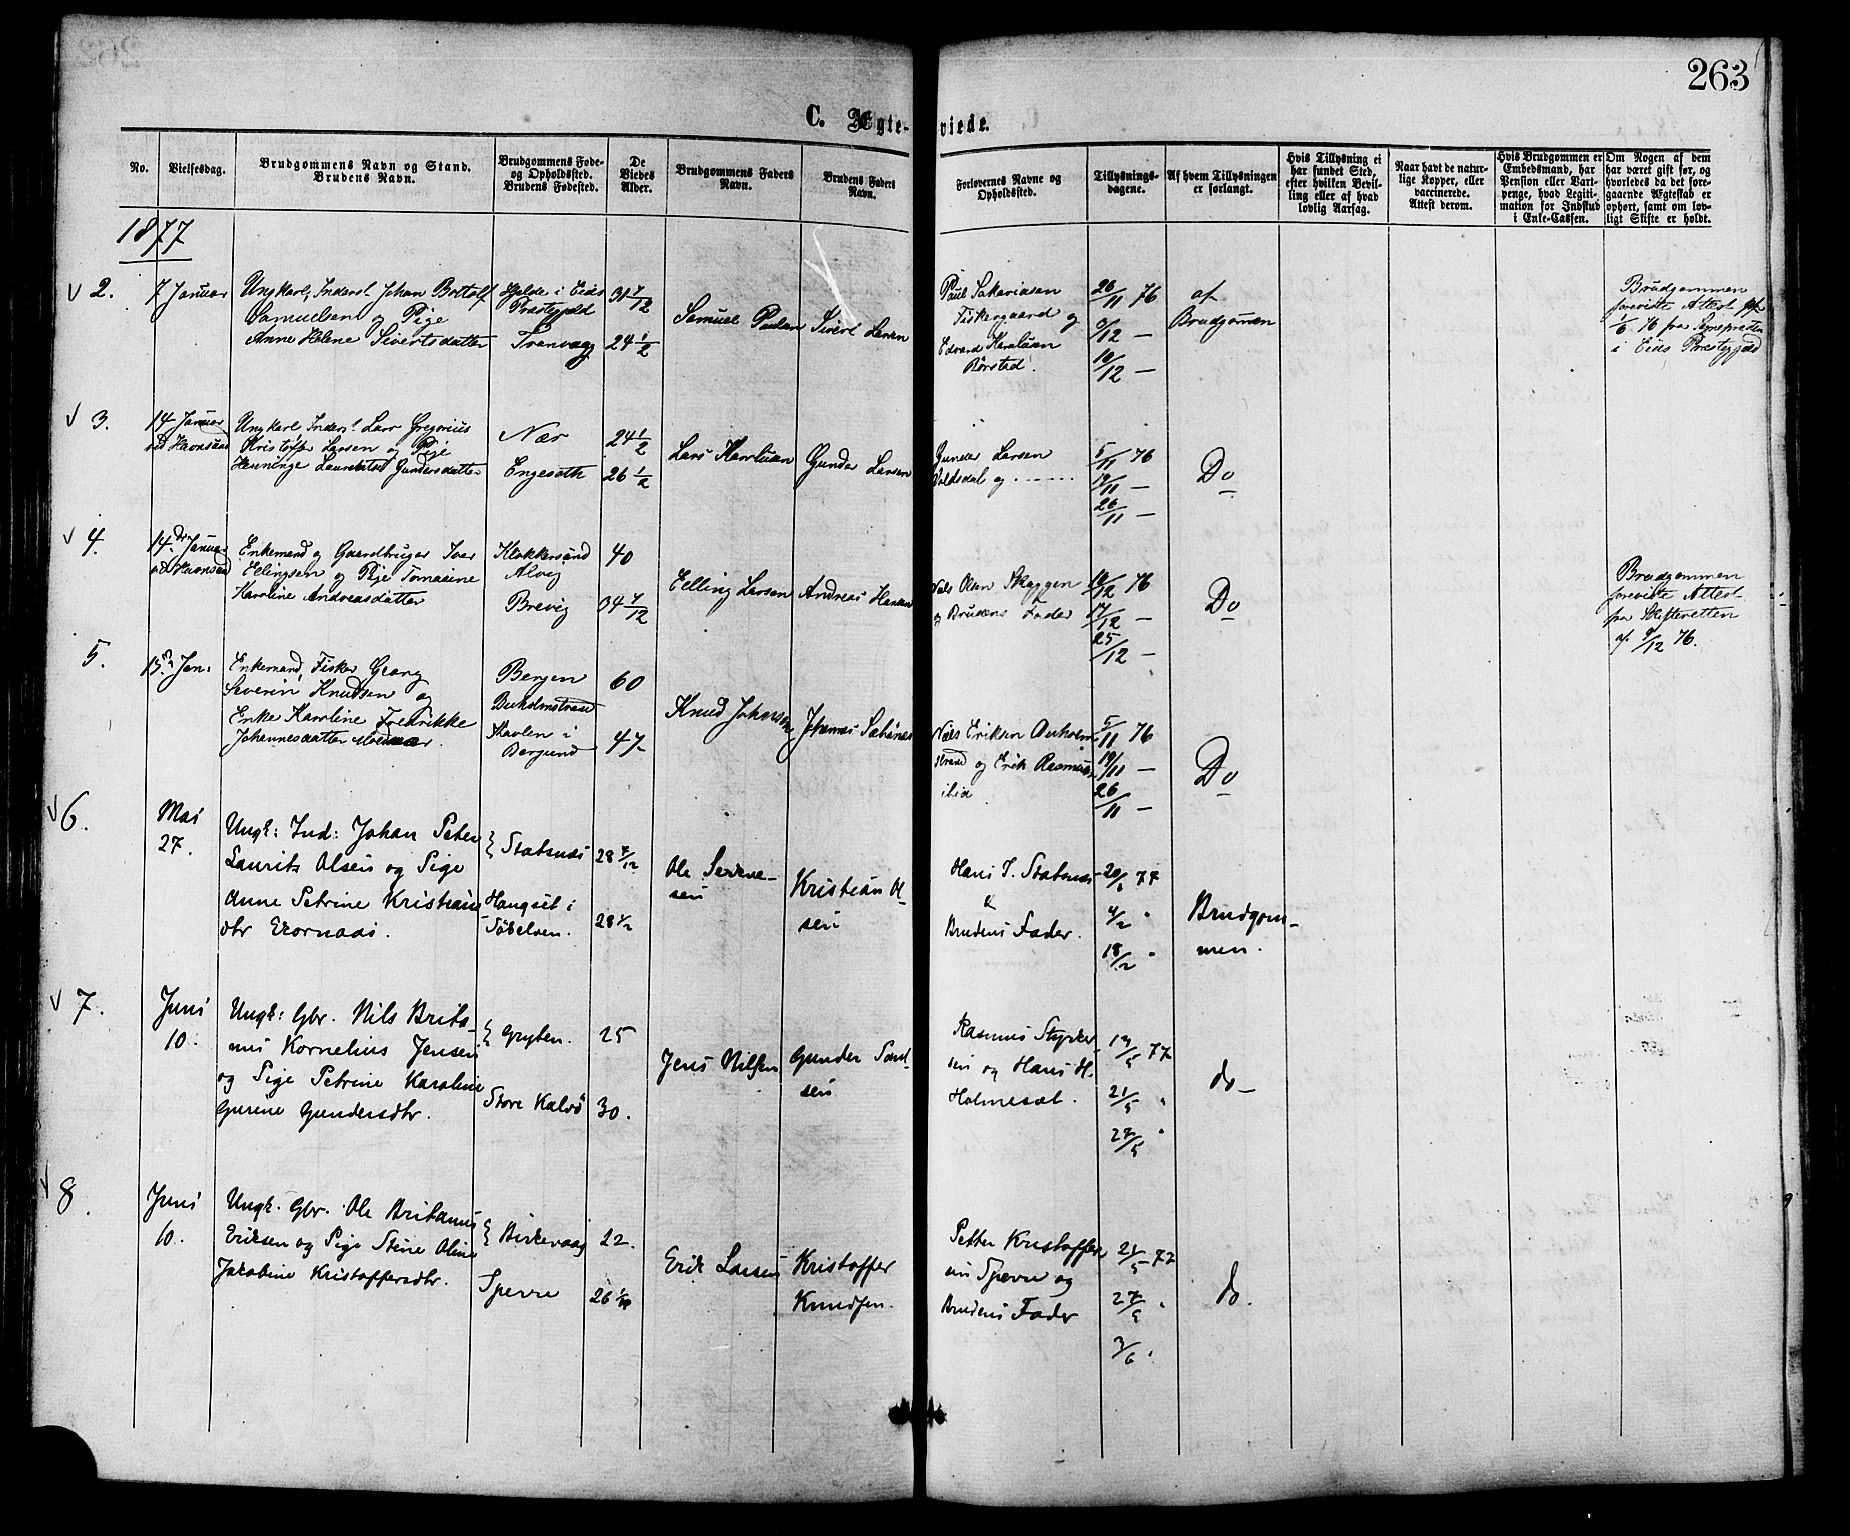 263
C. Ægte-
viede.
No.
Vielsesdag.
Brudgommens Navn og Stand.
Brudens Navn.
Brudgommens Føde-
og Opholdssted.
Brudens Fødested.
De
Viedes
Alder.
Brudgommens Faders
Navn.
Brudens Faders
Navn.
Forlovernes Navne og
Opholdssted.
Tillysnings-
dagene.
Af hvem Tillysningen
er forlangt.
Hvis Tillysning ei
har fundet Sted,
efter hvilken Bevil-
ling eller af hvad
lovlig Aarsag.
Naar havt de natur-
lige Kopper, eller
vaccinerede.
Attest derom.
Hvis Brudgommen er
Embedsmand, har
Pension eller Vart-
penge, hvad Legiti-
mation for Indskud
i Enke-Cassen.
Om Nogen af dem
har været gift før, og
hvorledes da det fore-
gaaende Ægteskab er
ophørt, samt om lov-
ligt Skifte er holdt.
1877
2.
7 Januar
Ungkarl, Inderst Johan Bottolf
Samuelsen og Pige
Anne Helene Sivertsdatter
Hjelde i Eids
Præstegjeld
Tranvaag
31 7/12
24 1/2
Samuel Paulsen
Sivert Larsen
Paul Sakariasen
Fiskergaard og
Edvard Karolusen
Børstad.
26/11 76
/12 —
10/12 —
af
Brudgommen
Brudgommen
foreviste Attest
1/6 76 fra Sognepresten
i Eids Præstegjeld
3.
14 Januar
Ungkarl Inderst Lars Gregorius
Kristofer Larsen og Pige
Henninge Gundersdatter
Nær
Engesæth
24 1/2
26 1/2
Lars Karolusen
Gunder Larsen
Gunder Larsen
Voldsdal og
5/11 76
19/11 —
26/11 —
Do
4.
14. Januar
Enkemand og Gaardbruger Iver
Ellingsen og Pige Tomasine
Karoline Andreasdatter
Klokkersund
Alvig
Brevig
40
34 7/12
Elling Larsen
Andreas Hansen
Niels Olsen Skaggen
og Brudens Fader
10/12 76
17/12 —
25/12 —
Do
Brudgommen
foreviste Attest
fra Skifteretten
af 9/12 76.
5.
15. Jan:
Enkemand, Fisker Georg
Severin Knudsen og
Enke Karoline Fredrikke
Johannesdatter
Bergen
Buholmstrand
Havlen i
Borgund
60
47
Knud Johansen
Johannes
Niels Eriksen Buholm-
strand og Erik Rasmus
ibid
5/11 76
19/11 —
26/11 —
Do
6.
Mai
27.
Ungk: Ind: Johan Peter
Laurits Olsen og Pige
Anne Petrine Kristians
dtr Ekornaas.
Statsnæs
Haugset i
28 7/12
28 1/2
Ole
sen
Kristian Ol-
sen
Hans J. Statsnæs
&
Brudens Fader.
77
4/2 "
18/2 "
Brudgom-
men.
7.
Juni
10.
Ungk: Gbr. Nils Brita-
nus Kornelius Jensen
og Pige Petrine Karoline
Gurine Gundersdtr.
Gryten.
Store Kalvø
25
30.
Jens Nilsen
Gunder
sen
Rasmus Styrker-
sen og Hans H.
Holmeset.
/5 77
21/5 "
27/5 "
do—
8.
Juni
10.
Ungk. Gbr. Ole Britanus
Eriksen og Pige Stine Oline
Jakobine Kristoffersdtr.
Birkevaag
Spevre
22.
26
Erik Larsen
Kristoffer
Knudsen.
Petter Kristoffer-
sen Spevre og
Brudens Fader
21/5 77
27/5 "
3/6 "
do.